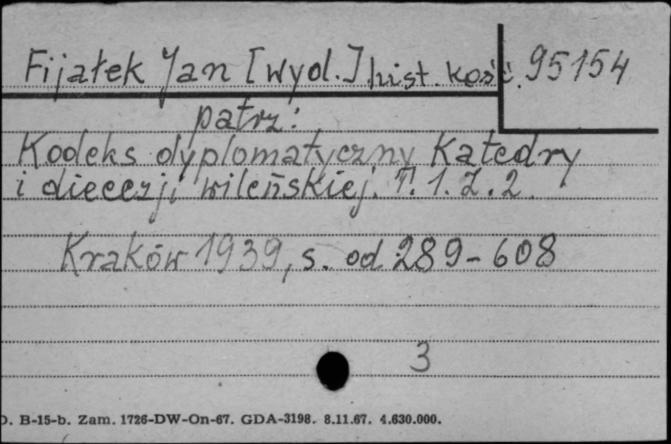 Fijałek Jan [wyd.] hist. kość. 95154
patrz:
Kodeks dyplomatyczny Katedry
i diecezji wileńskiej. T. 1. Z. 2.
Kraków 1939, s. od 289-608
3
D. B-15-b. Zam. 1726-DW-On-67. GDA-3198. 8.11.67. 4.630.000.